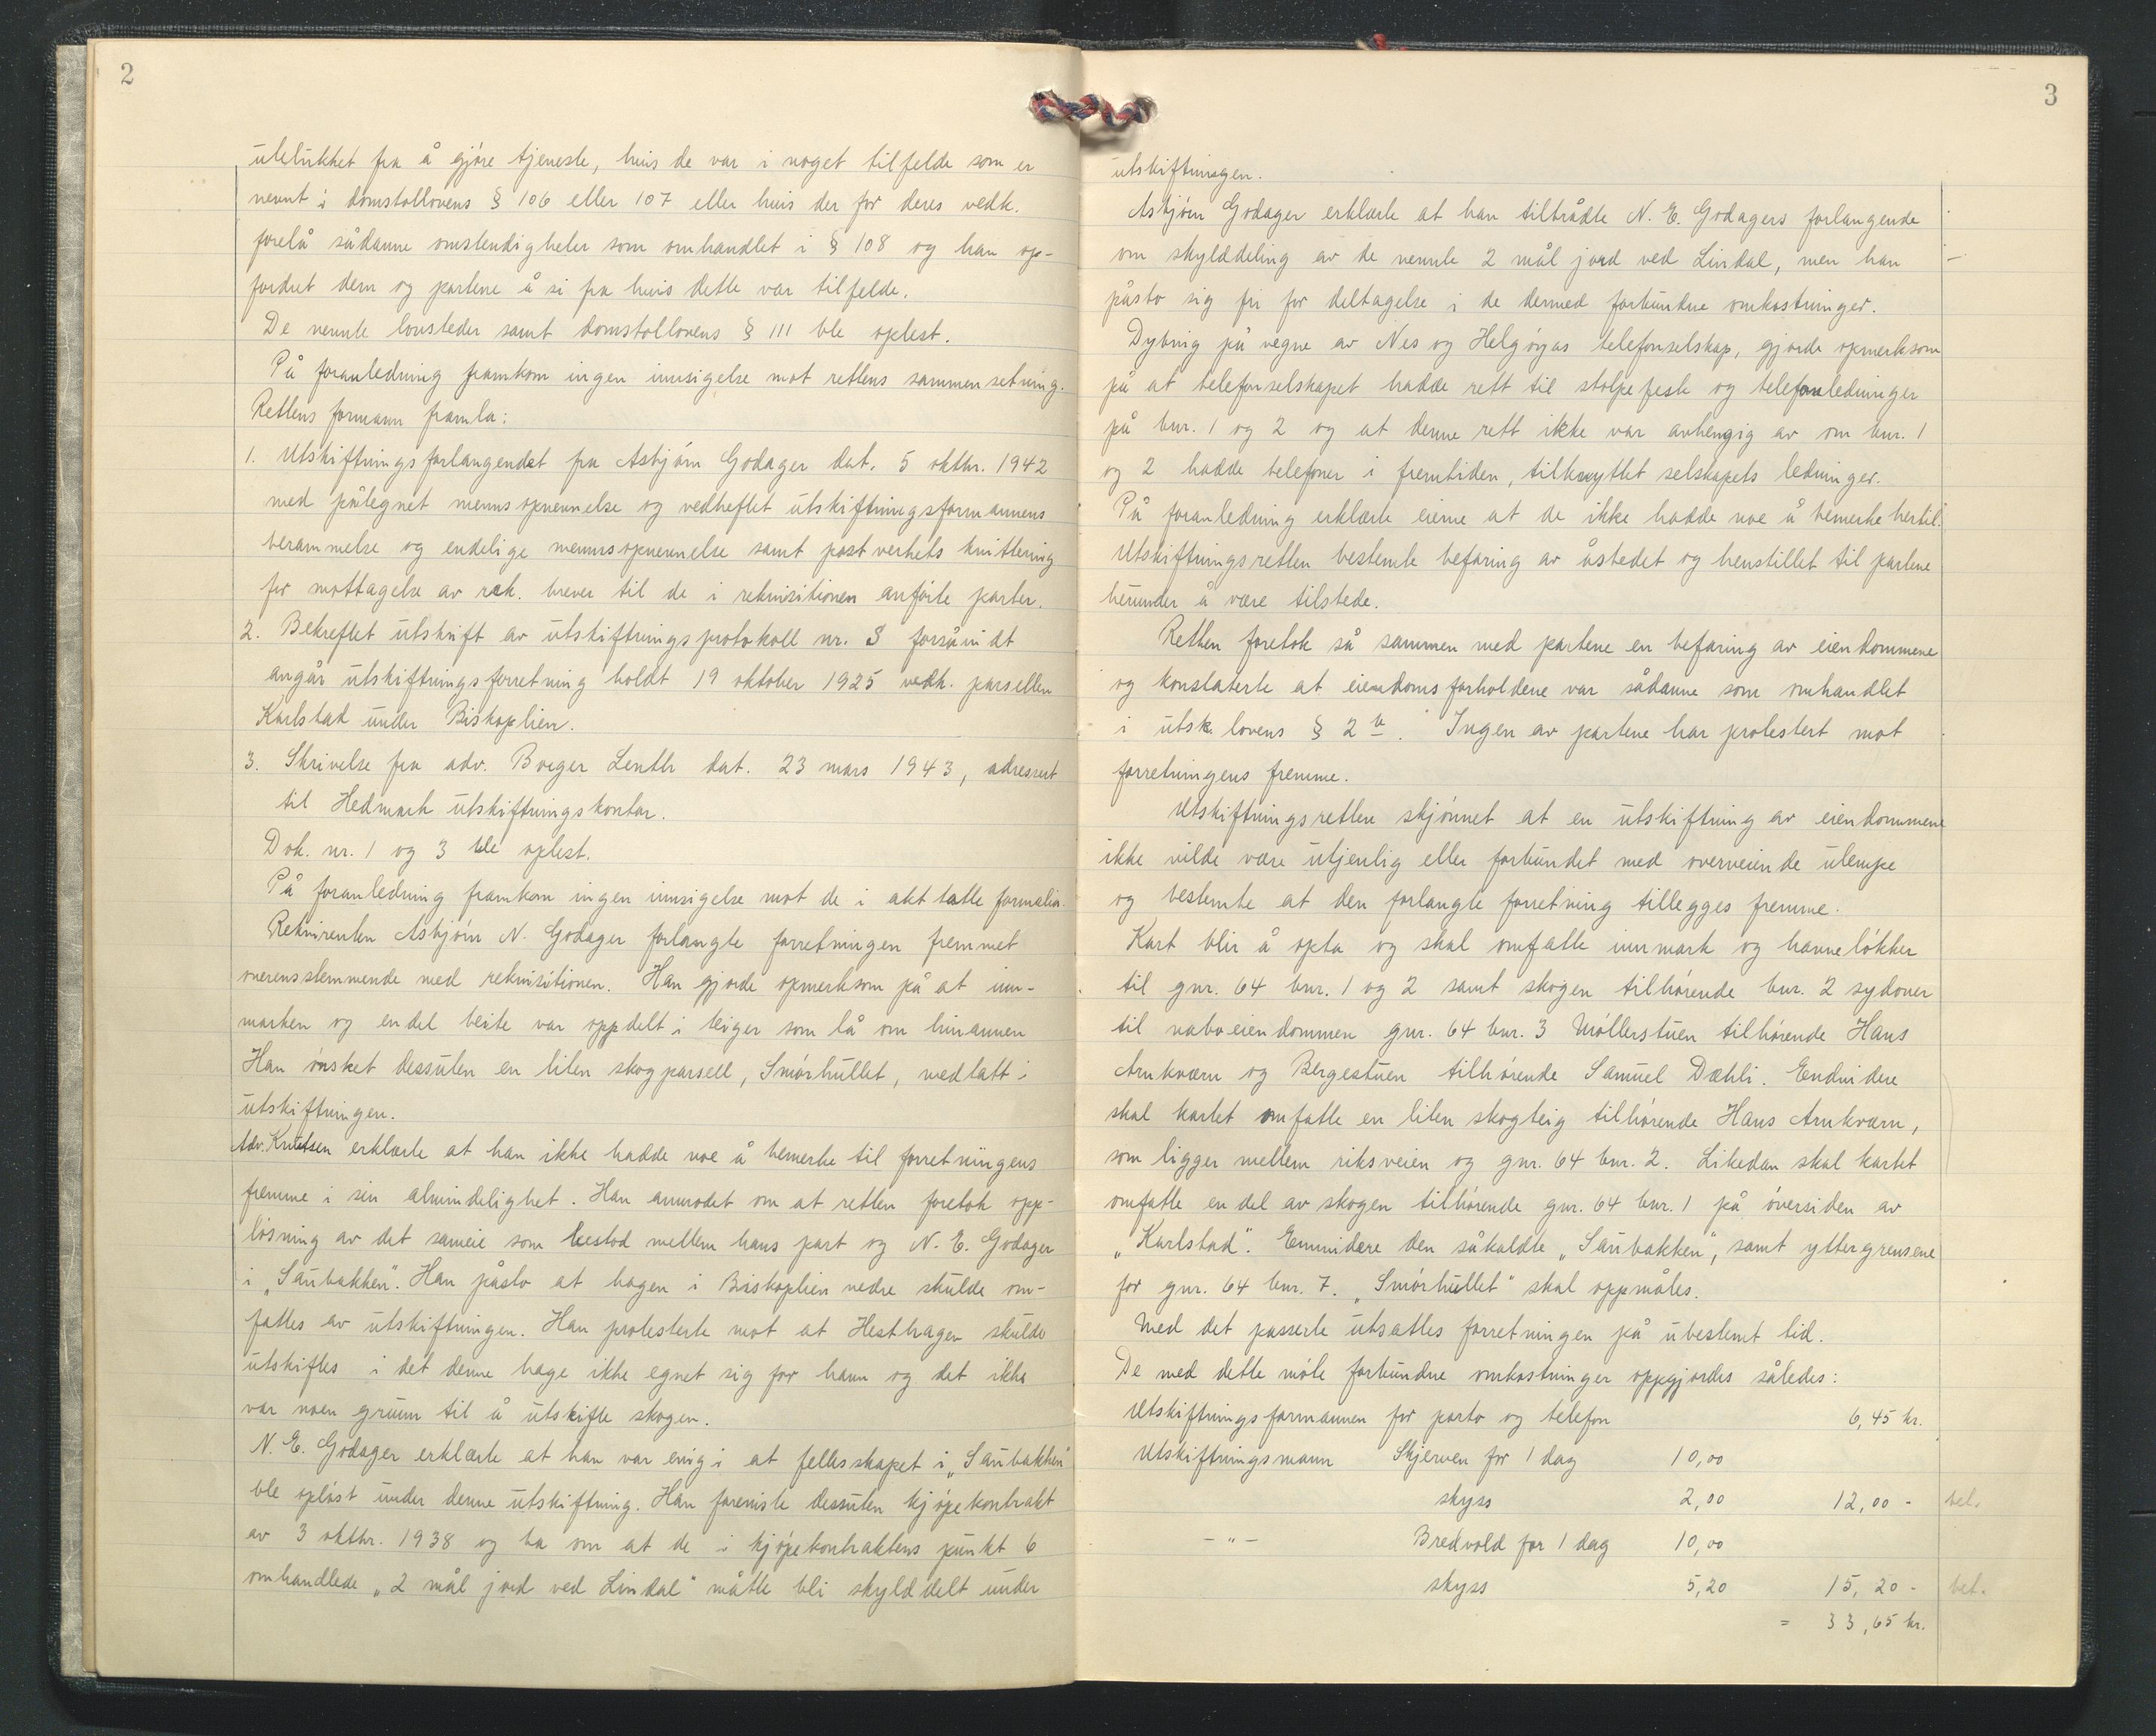 2
utelukket fra å gjøre tjeneste, hvis de var i noget tilfelde som er
nevnt i domstollovens § 106 eller 107 eller hvis der for deres vedk.
forelå sådanne omstendigheter som omhandlet i § 108 og han op-
fordret dem og partene å si fra hvis dette var tilfelde.
De nevnte lovsteder samt domstollovens § 111 ble oplest.
På foranledning framkom ingen innsigelse mot rettens sammensetning.
Rettens formann framla:
1. Utskiftningsforlangendet fra Asbjørn Godager dat. 5 oktbr. 1942
med påtegnet mennsopnevnelse og vedheftet utskiftningsformannens
berammelse og endelige mennsopnevnelse samt postverkets kvittering
for mottagelse av rek. brever til de i rekvisitionen anførte parter.
2. Bekreftet utskrift av utskiftningsprotokoll nr. 8 forsåvidt
angår utskiftningsforretning holdt 19 oktober 1925 vedk. parsellen
Karlstad under Biskoplien.
3. Skrivelse fra adv. Borger Lenth dat. 23 mars 1943, adressert
til Hedmark utskiftningskontor.
Dok. nr. 1 og 3 ble oplest.
På foranledning framkom ingen innsigelse mot de i akt tatte formalia.
Rekvirenten Asbjørn N. Godager forlangte forretningen fremmet
overensstemmende med rekvisitionen. Han gjorde opmerksom på at inn-
marken og en del beite var oppdelt i teiger som lå om hinannen
Han ønsket dessuten en liten skogparsell, Smørhullet, medtatt i
utskiftningen.
Adv. Knutsen erklærte at han ikke hadde noe å bemerke til forretningens
fremme i sin almindelighet. Han anmodet om at retten foretok opp-
løsning av det sameie som bestod mellem hans part og N. E. Godager
i „Saubakken". Han påsto at hagen i Biskoplien nedre skulde om-
fattes av utskiftningen. Han protesterte mot at Hesthagen skulde
utskiftes i det denne hage ikke egnet sig for havn og det ikke
var noen grunn til å utskifte skogen.
N. E. Godager erklærte at han var enig i at fellesskapet i „Saubakken"
ble opløst under denne utskiftning. Han foreviste dessuten kjøpekontrakt
av 3 oktbr. 1938 og ba om at de i kjøpekontraktens punkt 6
omhandlede „2 mål jord ved Lindal" måtte bli skylddelt under
3
utskiftningen.
Asbjørn Godager erklærte at han tiltrådte N. E. Godagers forlangende
om skylddeling av de nevnte 2 mål jord ved Lindal, men han
påsto sig fri for deltagelse i de dermed forbundne omkostninger.
Dybvig på vegne av Nes og Helgøyas telefonselskap, gjorde opmerksom
på at telefonselskapet hadde rett til stolpefeste og telefonledninger
på bnr. 1 og 2 og at denne rett ikke var avhengig av om bnr. 1
og 2 hadde telefoner i fremtiden, tilknyttet selskapets ledninger.
På foranledning erklærte eierne at de ikke hadde noe å bemerke hertil.
Utskiftningsretten bestemte befaring av åstedet og henstillet til partene
herunder å være tilstede.
Retten foretok så sammen med partene en befaring av eiendommene
og konstaterte at eiendomsforholdene var sådanne som omhandlet
i utsk.lovens § 2 b. Ingen av partene har protestert mot
forretningens fremme.
Utskiftningsretten skjønnet at en utskiftning av eiendommene
ikke vilde være utjenlig eller forbundet med overveiende ulempe
og bestemte at den forlangte forretning tillegges fremme.
Kart blir å opta og skal omfatte innmark og havneløkker
til gnr. 64 bnr. 1 og 2 samt skogen tilhørende bnr. 2 sydover
til naboeiendommen gnr. 64 bnr. 3 Møllerstuen tilhørende Hans
Arnkværn og Bergestuen tilhørende Samuel Dæhli. Endvidere
skal kartet omfatte en liten skogteig tilhørende Hans Arnkværn,
som ligger mellem riksveien og gnr. 64 bnr. 2. Likedan skal kartet
omfatte en del av skogen tilhørende gnr. 64 bnr. 1 på øversiden av
„Karlstad". Ennvidere den såkaldte „Saubakken", samt yttergrensene
for gnr. 64 bnr. 7. „Smørhullet" skal oppmåles.
Med det passerte utsattes forretningen på ubestemt tid.
De med dette møte forbundne omkostninger oppgjordes således:
Utskiftningsformannen for porto og telefon 6,45 kr.
Utskiftningsmann Skjerven for 1 dag 10,00
skyss 2,00 12,00 - bet.
- " - Bredvold for 1 dag 10,00
skyss 5,20 15,20 - bet.
= 33,65 kr.